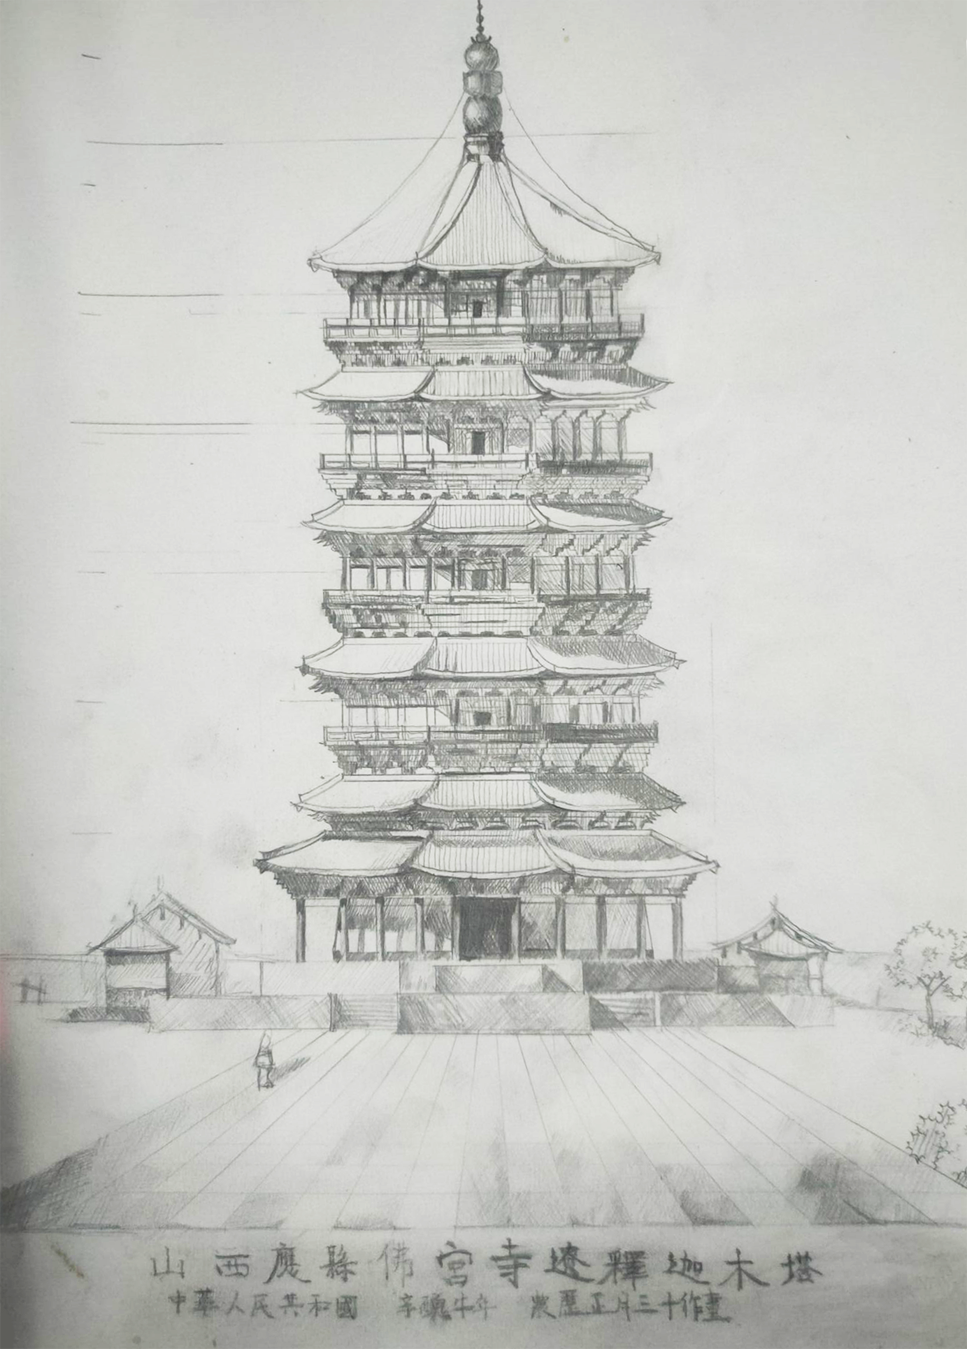 山西應縣佛宮寺遼釋迦木塔
中華人民共和國 辛醜牛年 農歷正月三十作畫